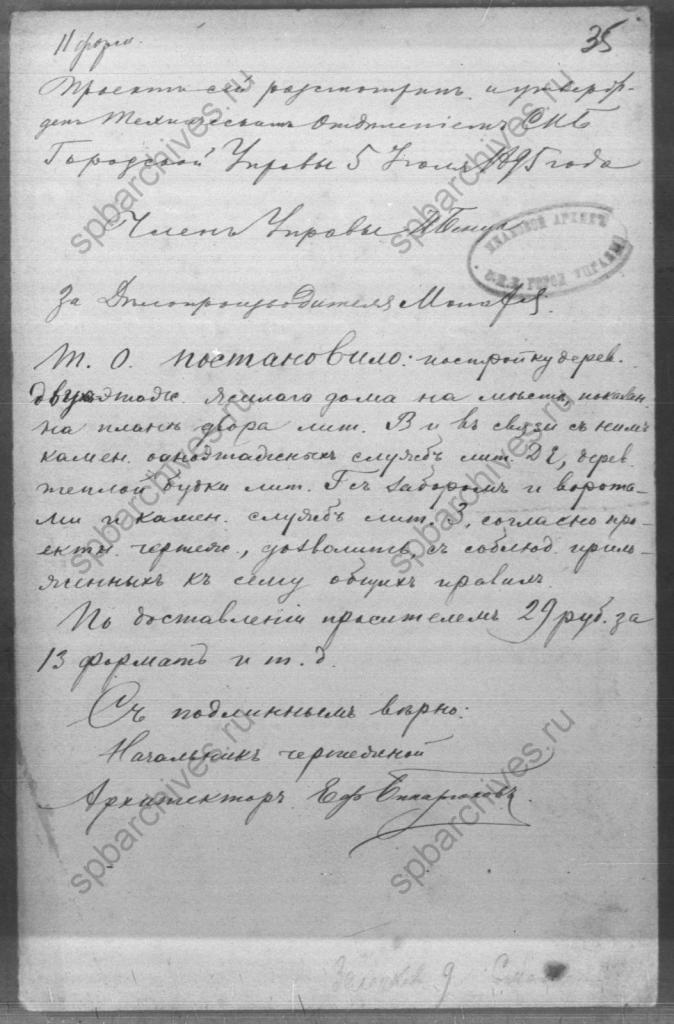 11 форм.
35
Проектъ сей разсмотрѣнъ и утверж-
денъ Техническимъ Отдѣленіемъ СПБ
Городской Управы 5 Іюля 1895 года
Членъ Управы
ПЛАНОВОЙ АРХИВЪ
С.П.Б. ГОРОД. УПРАВЫ
За Дѣлопроизводителя
Т. О. постановило: постройку дерев.
двухэтажн. жилаго дома на мѣстѣ, показан.
на планѣ двора лит. В и въ связи съ нимъ
камен. одноэтажныхъ службъ лит. ДЕ, дерев.
теплой будки лит. Г съ заборомъ и ворота-
ми и камен. службъ лит. З, согласно про-
екты. чертеж., дозволить, съ соблюд. прило-
женныхъ къ сему общихъ правилъ.
По доставленіи просителемъ 29 руб. за
13 форматъ и т. д.
Съ подлиннымъ вѣрно:
Начальникъ чертежной
Архитекторъ
spbarchives.ru
spbarchives.ru
spbarchives.ru
spbarchives.ru
spbarchives.ru
spbarchives.ru